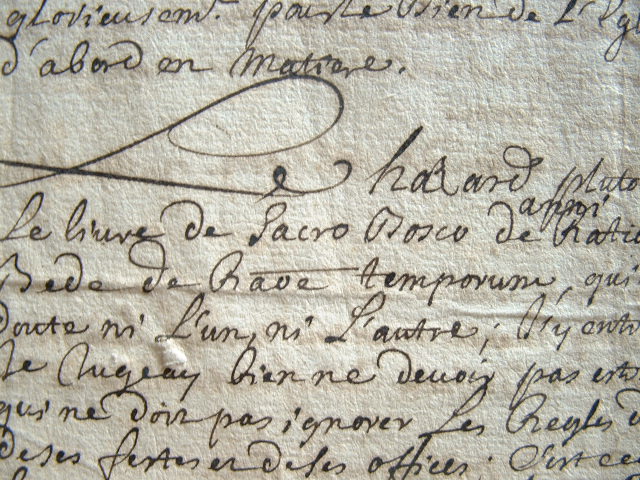 glorieusem.t pour le Bien de L'Egl
d'abord en Matiere.
Le hazard plutos
anni
Le livre de Sacro Bosco de Ratio
Bede de Raõe temporum, qui
doute ni L'un, ni L'autre; J'y entr
Je Jugeay bien ne devoir pas estr
qui ne doit pas ignorer Les Regles d
de ses festes et de ses offices; C'est ce